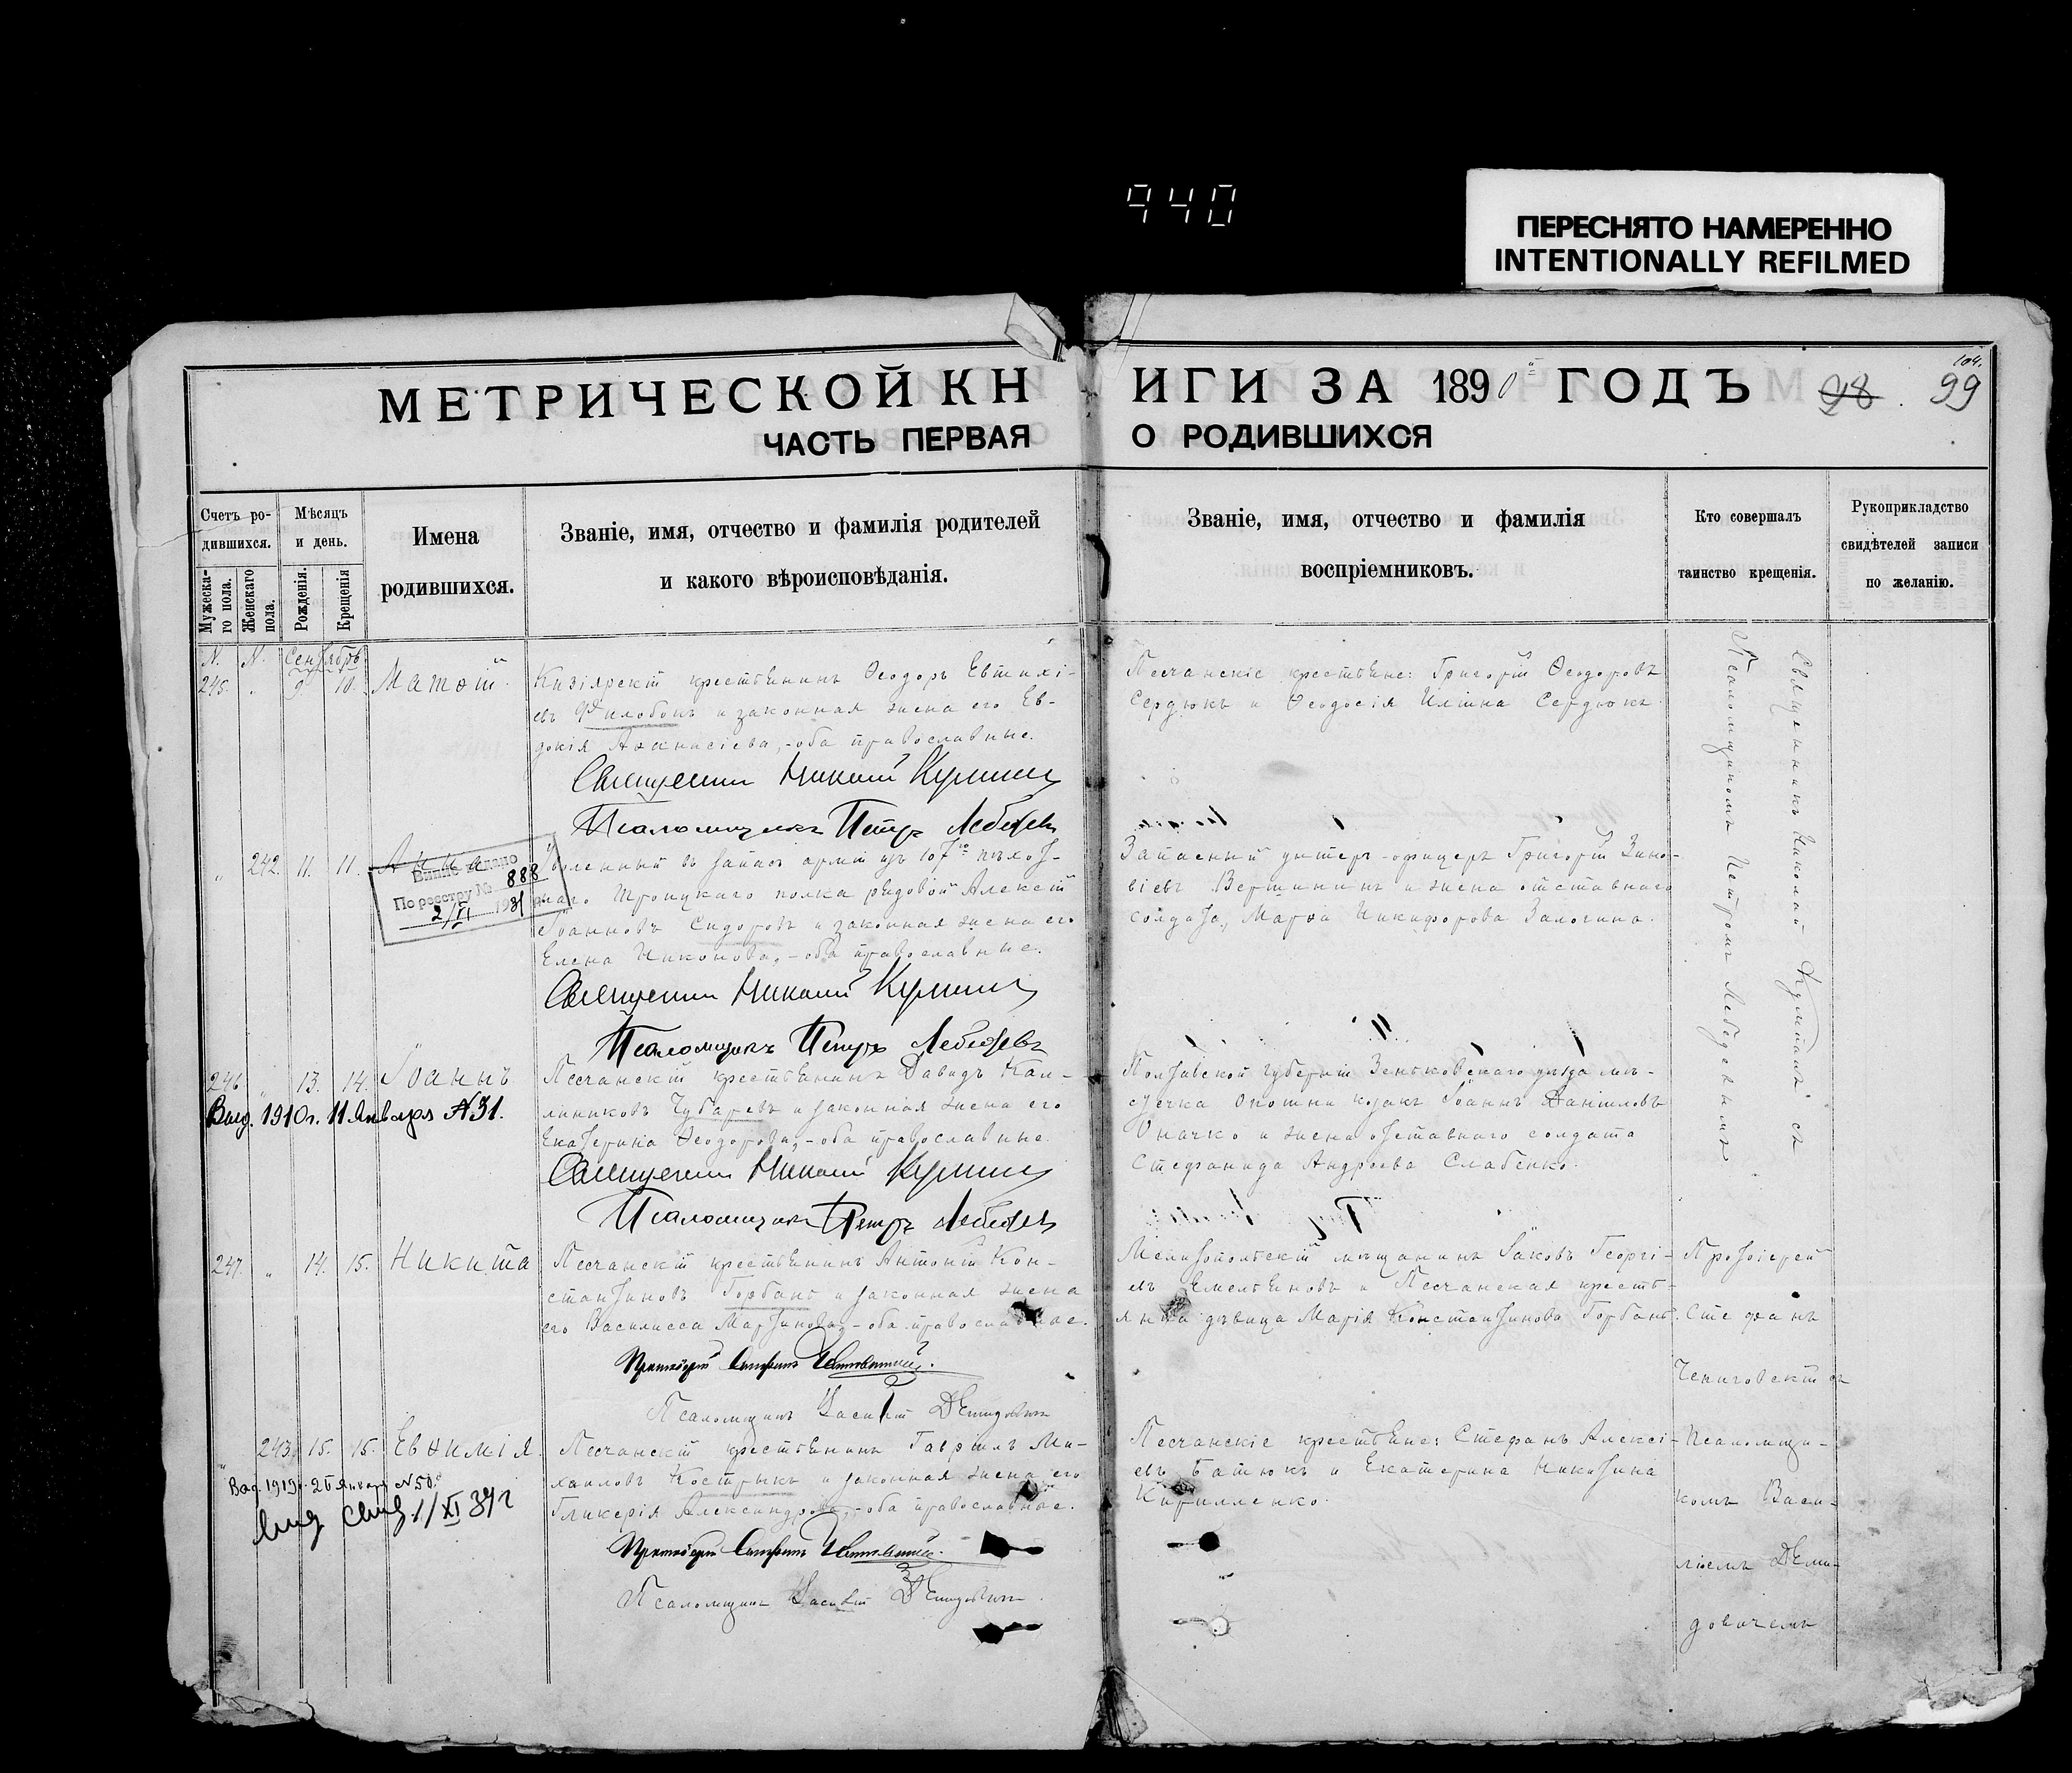 940
ПЕРЕСНЯТО НАМЕРЕННО
INTENTIONALLY REFILMED
104.
МЕТРИЧЕСКОЙ КНИГИ ЗА 1890 ГОДЪ
98. 99
ЧАСТЬ ПЕРВАЯ О РОДИВШИХСЯ
Счетъ родившихся.
Мужескаго пола.
Женскаго пола.
Мѣсяцъ и день.
Рожденія.
Крещенія
Имена родившихся.
Званіе, имя, отчество и фамилія родителей
и какого вѣроисповѣданія.
Званіе, имя, отчество и фамилія
воспріемниковъ.
Кто совершалъ
таинство крещенія.
Рукоприкладство
свидѣтелей записи
по желанію.
N. N. Сентябрь
245. " 9. 10. Матѳій
крестьянинъ Ѳеодоръ Евтихі-
евъ и законная жена его Ев-
докія Аѳанасіева, - оба православные.
Священникъ Николай
Псаломщикъ Петръ Лебедевъ
Песчанскіе крестьяне: Григорій Ѳеодоровъ
Сердюкъ и Ѳеодосія Иліина Сердюкъ
Священникъ Николай съ
Псаломщикомъ Петромъ Лебедевымъ
" 242. 11. 11. Анна
Видано
По реестру № 888
2/VI 1931 р.
Уволенный въ запасъ арміи изъ 107го пѣхот-
наго Троицкаго полка рядовой Алексій
Іоанновъ Сидоровъ и законная жена его
Елена Никонова, - оба православные.
Священникъ Николай
Псаломщикъ Петръ Лебедевъ
Запасный унтеръ-офицеръ Григорій Зино-
віевъ Вершининъ и жена отставнаго
солдата, Марѳа Никифорова Залогина.
246 " 13. 14. Іоаннъ
Выд. 1910 г. 11 Января №31.
Песчанскій крестьянинъ Давидъ Кал-
линиковъ Чубаревъ и законная жена его
Екатерина Ѳеодорова, - оба православные.
Священникъ Николай
Псаломщикъ Петръ Лебедевъ
Полтавской губерніи Зеньковскаго уѣзда мѣ-
стечка Опошни козакъ Іоаннъ Даніиловъ
Оначко и жена отставнаго солдата
Стефанида Андреева Слабенко.
247. " 14. 15. Никита
Песчанскій крестьянинъ Антоній Кон-
стантиновъ Горбань и законная жена
его Василисса Мартинова, - оба православные.
Протоіерей Стефанъ
Псаломщикъ Василій Демидовичъ
Мелитопольскій мѣщанинъ Іаковъ Георгі-
евъ Емельяновъ и Песчанская кресть-
янка дѣвица Марія Константинова Горбань.
Протоіерей
Стефанъ
съ
Псаломщи-
комъ Васи-
ліемъ Деми-
довичемъ
" 243. 15. 15. Евѳимія
Выд. 1919 г. 26 Января №50.
свид. 1/XI 34 г
Песчанскій крестьянинъ Гавріилъ Ми-
хаиловъ Кострыкъ и законная жена его
Гликерія Александрова, - оба православные.
Протоіерей Стефанъ
Псаломщикъ Василій Демидовичъ
Песчанскіе крестьяне: Стефанъ Алексі-
евъ Батюкъ и Екатерина Никитина
Кирилленко.